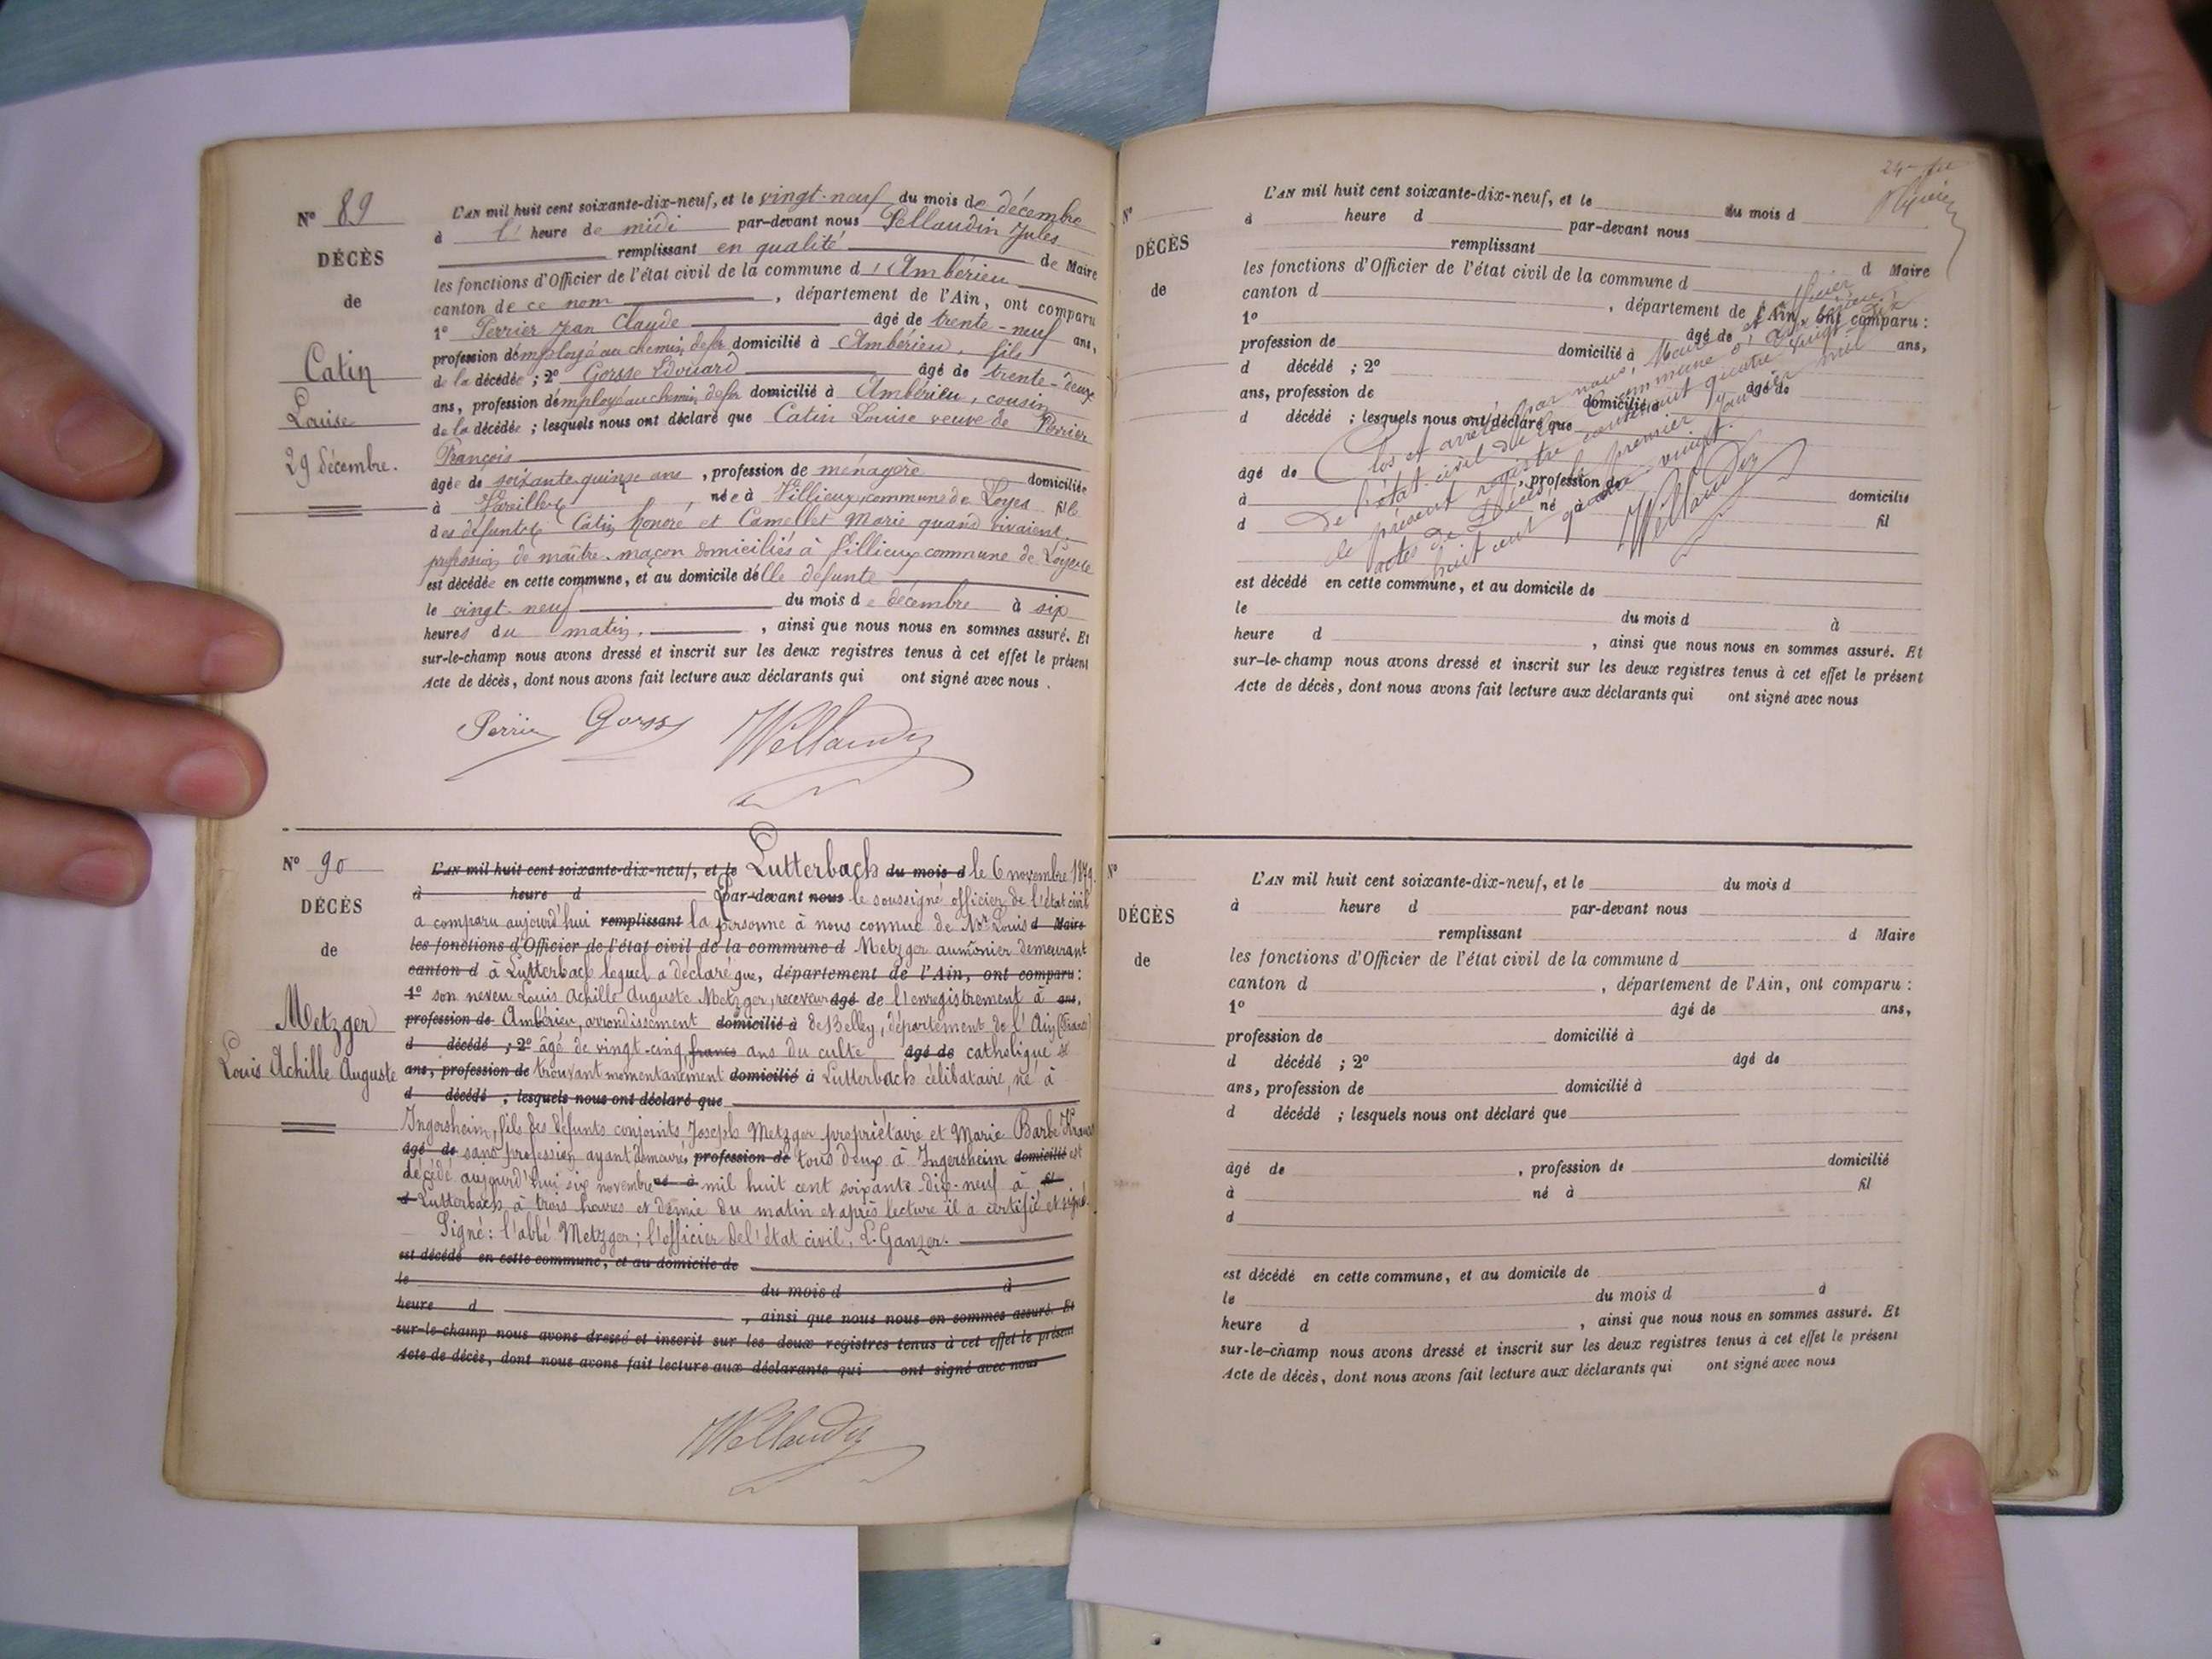 N° 89
DÉCÈS
de
Catin
Louise
29 décembre.
L'AN mil huit cent soixante-dix-neuf, et le vingt-neuf du mois de décembre
à l' heure de midi par-devant nous Pellaudin Jules
remplissant en qualité de Maire
les fonctions d'Officier de l'état civil de la commune d'Ambérieu
canton de ce nom , département de l'Ain, ont comparu
1° Perrier Jean Claude âgé de trente-neuf ans,
profession d'employé au chemin de fer domicilié à Ambérieu, fils
de la décédée ; 2° Gorsse Edouard âgé de trente-deux
ans, profession d'employé au chemin de fer domicilié à Ambérieu, cousin
de la décédée ; lesquels nous ont déclaré que Catin Louise veuve de Perrier
François
âgée de soixante quinze ans , profession de ménagère domiciliée
à , née à Villieux commune de Loyes fille
des défunts Catin honoré et Camellet Marie quand vivaient
profession de maître-maçon domiciliés à Villieux commune de Loyes
est décédée en cette commune, et au domicile de lle défunte
le vingt-neuf du mois de décembre à six
heures du matin. , ainsi que nous nous en sommes assuré. Et
sur-le-champ nous avons dressé et inscrit sur les deux registres tenus à cet effet le présent
Acte de décès, dont nous avons fait lecture aux déclarants qui ont signé avec nous .
Perrier Gorsse Pellaudin
N° 90
DÉCÈS
de
Metzger
Louis Achille Auguste
L'AN mil huit cent soixante-dix-neuf, et le Lutterbach du mois d le 6 novembre 1879.
à heure d Par-devant nous le soussigné officier de l'état civil
a comparu aujourd'hui remplissant la personne à nous connue de Mr Louis d Maire
les fonctions d'Officier de l'état civil de la commune d Metzger aumônier demeurant
canton d à Lutterbach lequel a déclaré que, département de l'Ain, ont comparu :
1° son neveu Louis Achille Auguste Metzger, receveur âgé de l'enregistrement à ans,
profession de Ambérieu, arrondissement domicilié à de Belley, département de l'Ain (France)
d décédé ; 2° âgé de vingt-cinq francs ans du culte âgé de catholique se
ans, profession de trouvant momentanément domicilié à Lutterbach célibataire, né à
d décédé ; lesquels nous ont déclaré que
Ingersheim, fils des défunts conjoints Joseph Metzger propriétaire et Marie Barbe
âgé de sans profession ayant demeuré, profession de tous deux à Ingersheim domicilié est
décédé aujourd'hui six novembre né à mil huit cent soixante-dix-neuf à fil
d Lutterbach à trois heures et demie du matin et après lecture il a certifié et signé.
Signé : l'abbé Metzger ; l'officier de l'état civil, L. Ganzer.
est décédé en cette commune, et au domicile de
le du mois d à
heure d , ainsi que nous nous en sommes assuré. Et
sur-le-champ nous avons dressé et inscrit sur les deux registres tenus à cet effet le présent
Acte de décès, dont nous avons fait lecture aux déclarants qui ont signé avec nous
Pellaudin
N°
DÉCÈS
de
L'AN mil huit cent soixante-dix-neuf, et le du mois d
à heure d par-devant nous
remplissant d Maire
les fonctions d'Officier de l'état civil de la commune d
canton d , département de l'Ain, ont comparu :
1° âgé de ans,
profession de domicilié à
d décédé ; 2° âgé de
ans, profession de domicilié à
d décédé ; lesquels nous ont déclaré que
âgé de , profession de domicilié
à né à fil
d
Clos et arrêté par nous, Maire et Officier
de l'état civil de la Commune d'Ambérieu
le présent registre contenant quatre vingt dix
actes de Décès, le premier Janvier mil
huit cent quatre vingt.
Pellaudin
est décédé en cette commune, et au domicile de
le du mois d à
heure d , ainsi que nous nous en sommes assuré. Et
sur-le-champ nous avons dressé et inscrit sur les deux registres tenus à cet effet le présent
Acte de décès, dont nous avons fait lecture aux déclarants qui ont signé avec nous
N°
DÉCÈS
de
L'AN mil huit cent soixante-dix-neuf, et le du mois d
à heure d par-devant nous
remplissant d Maire
les fonctions d'Officier de l'état civil de la commune d
canton d , département de l'Ain, ont comparu :
1° âgé de ans,
profession de domicilié à
d décédé ; 2° âgé de
ans, profession de domicilié à
d décédé ; lesquels nous ont déclaré que
âgé de , profession de domicilié
à né à fil
d
est décédé en cette commune, et au domicile de
le du mois d à
heure d , ainsi que nous nous en sommes assuré. Et
sur-le-champ nous avons dressé et inscrit sur les deux registres tenus à cet effet le présent
Acte de décès, dont nous avons fait lecture aux déclarants qui ont signé avec nous